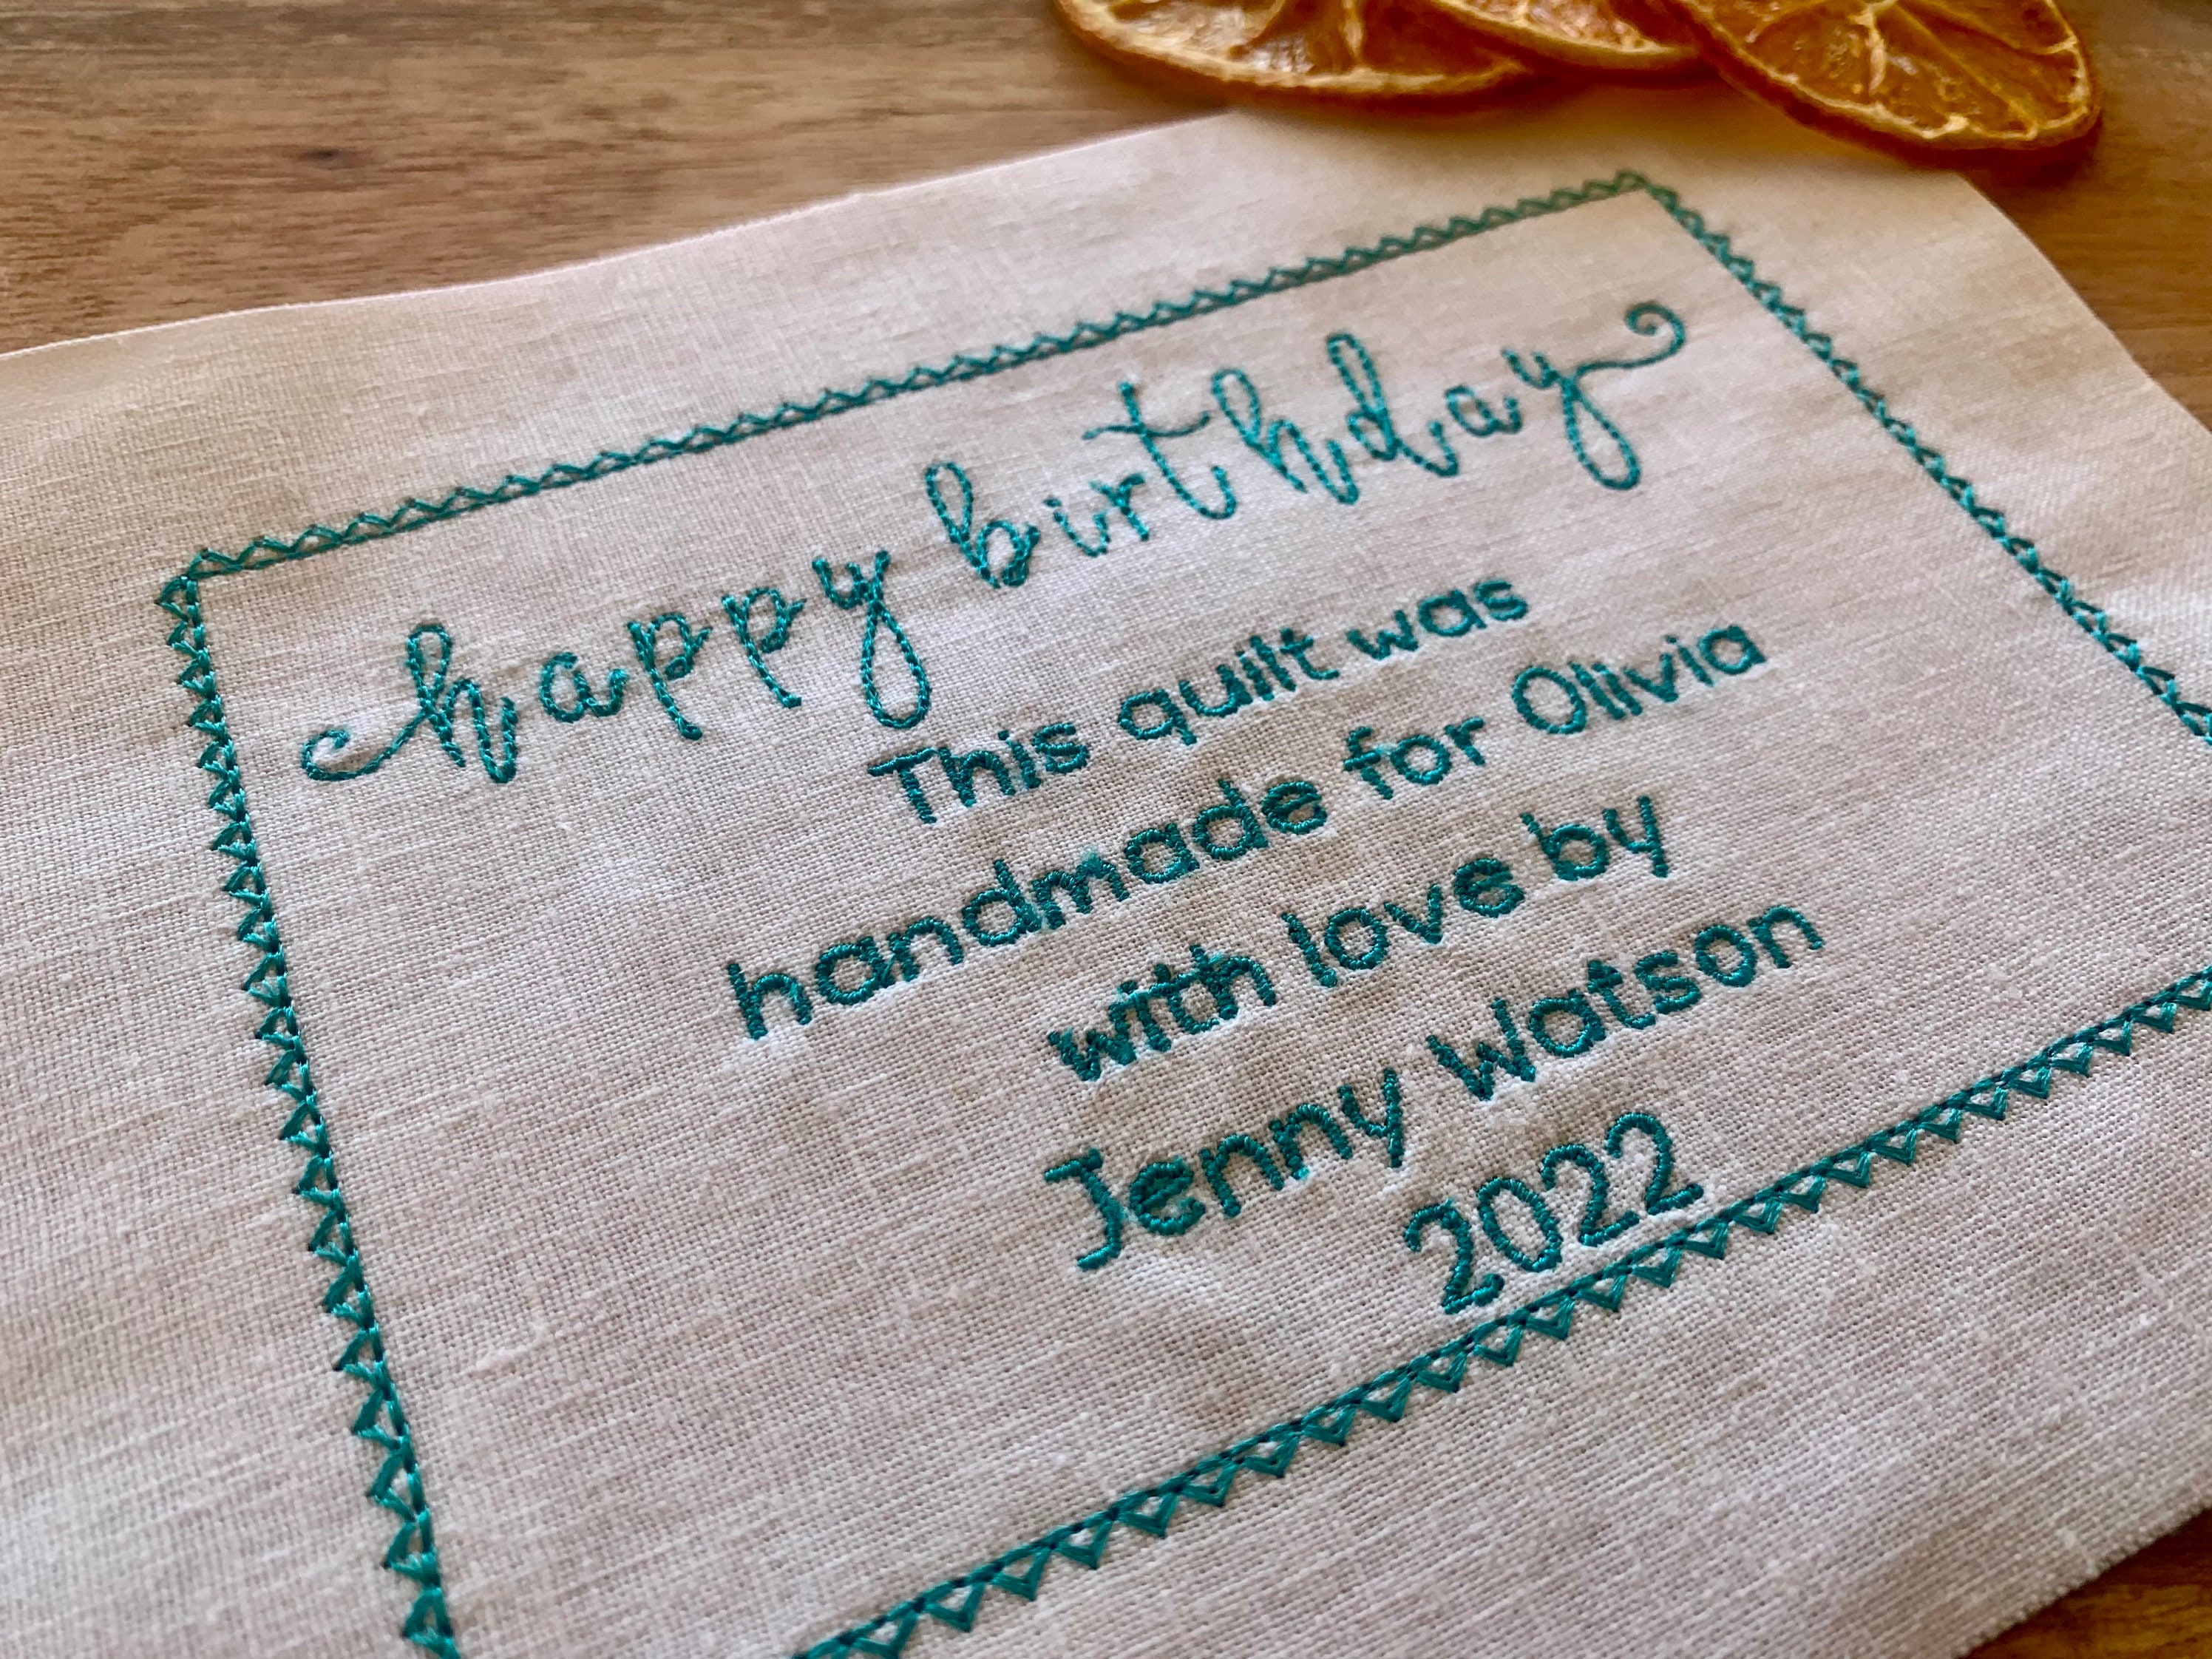 happy birthday
This quilt was
handmade for Olivia
with love by
Jenny Watson
2022